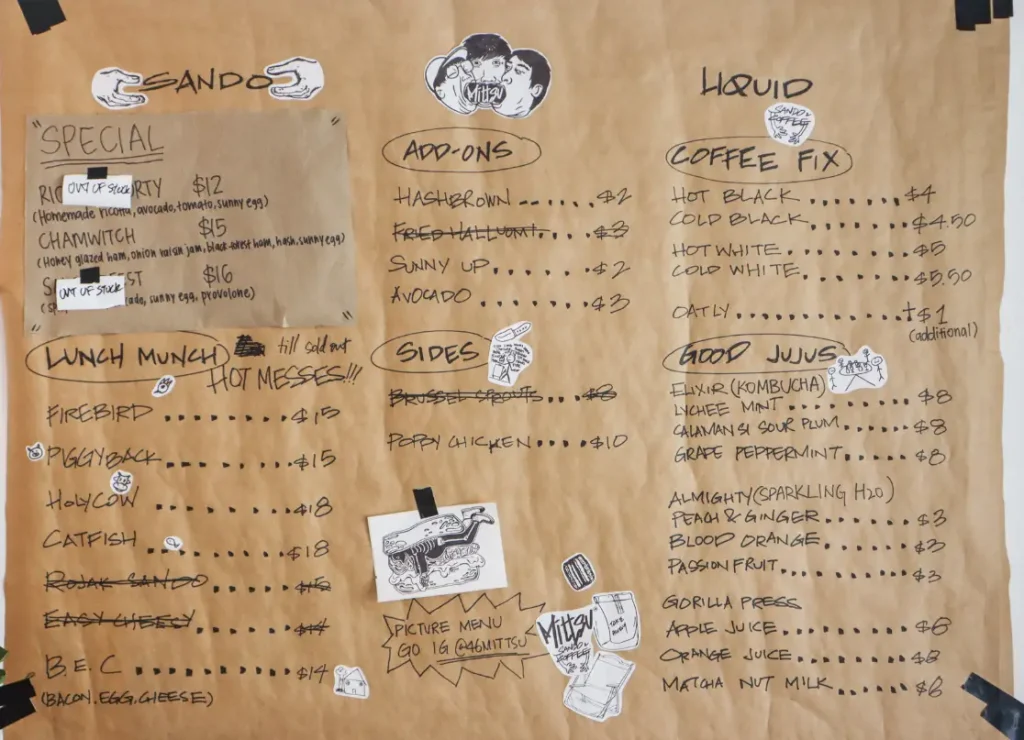 SANDO
"SPECIAL"
OUT OF STOCK
RTY $12
(Homemade ricotta, avocado, tomato, sunny egg)
CHAMWITCH $15
(Honey glazed ham, onion raisin jam, black forest ham, hash, sunny egg)
EST $16
OUT OF STOCK
ado, sunny egg, provolone)
LUNCH MUNCH till sold out
HOT MESSES!!!
FIREBIRD ........ $15
PIGGYBACK ........ $15
HOLYCOW ........ $18
CATFISH ........ $18
ROJAK SANDO ...... $15
EASY CHEESY ...... $14
B.E.C ........ $14
(BACON.EGG.CHEESE)
Mittsu
ADD-ONS
HASHBROWN ...... $2
FRED HALLUOMI .... $3
SUNNY UP ...... $2
AVOCADO ....... $3
SIDES
BRUSSEL SPROUTS ... $8
POPBY CHICKEN .... $10
PICTURE MENU
GO IG @46MITTSU
Mittsu
SANDO &
COFFEE
LIQUID
SANDO &
COFFEE
COFFEE FIX
HOT BLACK ....... $4
COLD BLACK ....... $4.50
HOT WHITE ....... $5
COLD WHITE ....... $5.50
OATLY ............ +$1
(additional)
GOOD JUJUS
ELIXIR (KOMBUCHA)
LYCHEE MINT ........ $8
CALAMANSI SOUR PLUM ..... $8
GRAPE PEPPERMINT ..... $8
ALMIGHTY (SPARKLING H2O)
PEACH & GINGER ....... $3
BLOOD ORANGE ....... $3
PASSIONFRUIT ........ $3
GORILLA PRESS
APPLE JUICE ........ $6
ORANGE JUICE ........
MATCHA NUT MILK ...... $6